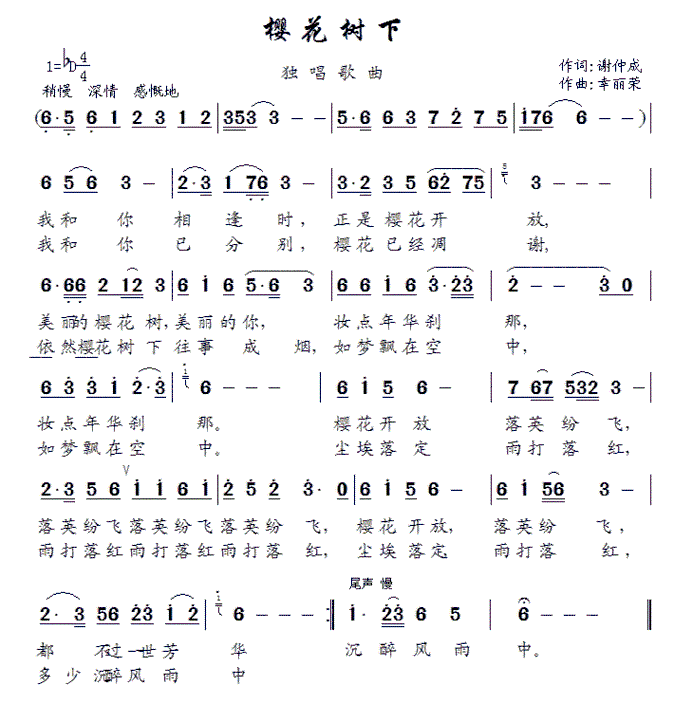 樱花树下
1=♭D 4/4
独唱歌曲
作词:谢仲成
作曲:幸丽荣
稍慢 深情 感慨地
(6·5 6 1 2 3 1 2 | 353 3 - - | 5·6 6 3 7 2 7 5 | i76 6 - - )|
6 5 6 3 - | 2·3 1 76 3 - | 3·2 3 5 62 75 | 5 3 - - - |
我和你相逢时,正是樱花开放,
我和你已分别,樱花已经凋谢,
6·66 2 12 3 | 6 i 6 5·6 3 | 6 i 6 i6 3·23 | 2 - - 3 0 |
美丽的樱花树,美丽的你,妆点年华刹那,
依然樱花树下往事成烟,如梦飘在空中,
6 3 3 i 2·3 | i 6 - - - | 6 i 5 6 - | 7 67 532 3 - |
妆点年华刹那。樱花开放落英纷飞,
如梦飘在空中。尘埃落定雨打落红,
2·3 5 6 i i 6 i | 2 5 2 3·0 | 6 i 5 6 - | 6 i 56 3 - |
落英纷飞落英纷飞落英纷飞,樱花开放,落英纷飞,
雨打落红雨打落红雨打落红,尘埃落定雨打落红,
尾声 慢
2·3 56 23 i 2 | i 6 - - - :| i·23 6 5 | 6 - - - |
都不过一世芳华沉醉风雨中。
多少沉醉风雨中